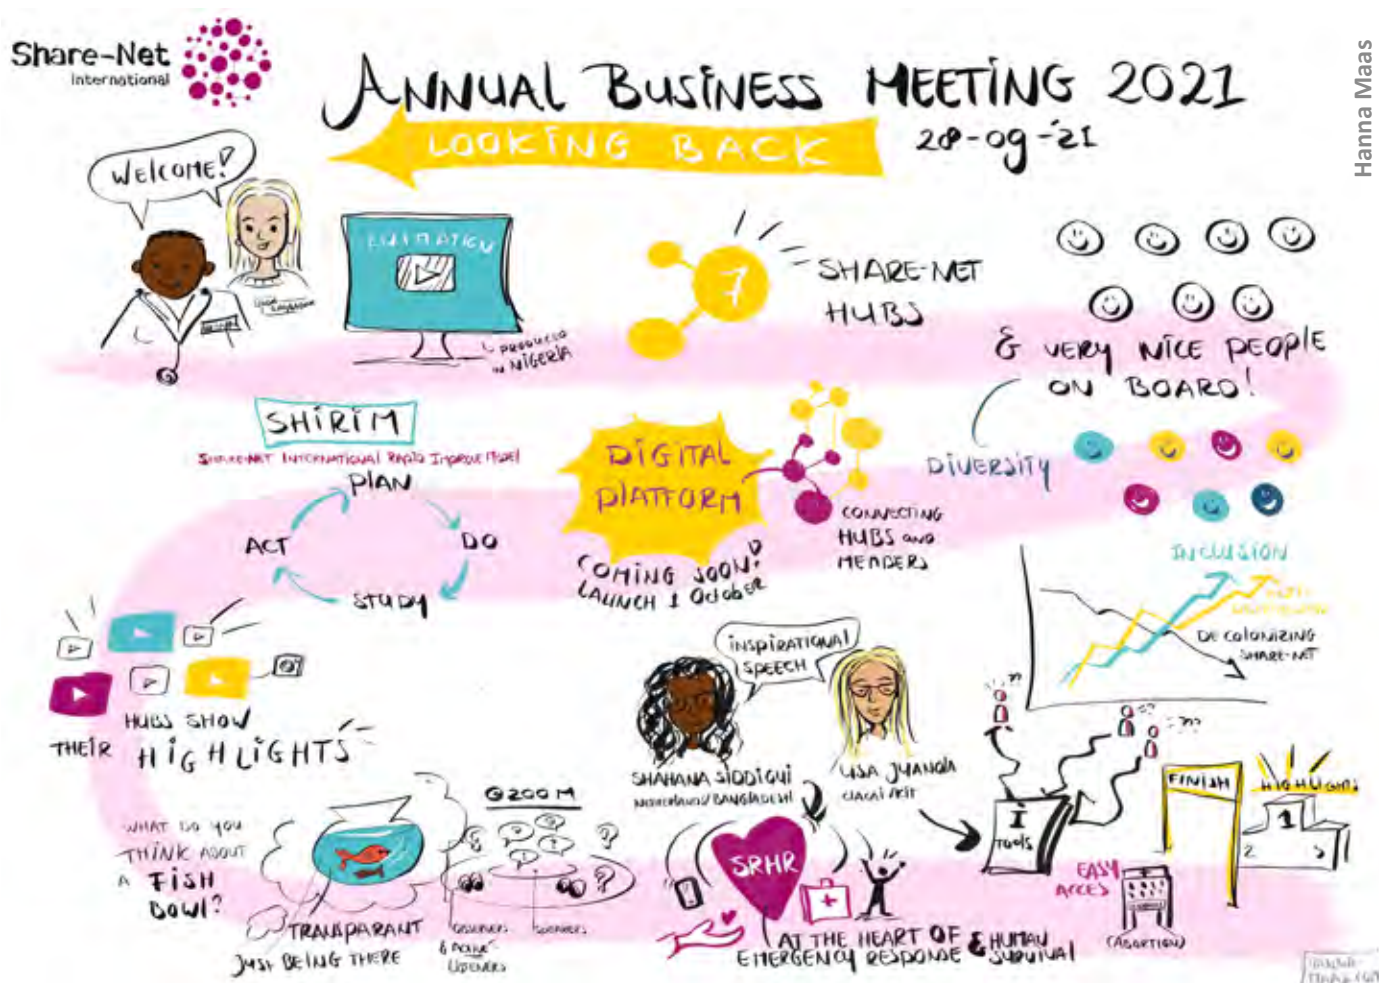 Share-Net
International
ANNUAL BUSINESS MEETING 2021
LOOKING BACK
28-09-'21
Hanna Maas
WELCOME!
ANIMATION
PRODUCED
IN NIGERIA
7
SHARE-NET
HUBS
& VERY NICE PEOPLE
ON BOARD!
DIVERSITY
SHIRIM
SHARE-NET INTERNATIONAL RAPID IMPROVE MODEL
PLAN
DO
STUDY
ACT
DIGITAL
PLATFORM
COMING SOON!
LAUNCH 1 OCTOBER
CONNECTING
HUBS AND
MEMBERS
INCLUSION
DECOLONIZING
SHARE-NET
HUBS SHOW
THEIR HIGHLIGHTS
INSPIRATIONAL
SPEECH
SHAHANA SIDDIQUI
NETHERLANDS/BANGLADESH
LISA
WHAT DO YOU
THINK ABOUT
A FISH
BOWL?
TRANSPARANT
JUST BEING THERE
@ZOOM
OBSERVERS
& ACTIVE
LISTENERS
SPEAKERS
SRHR
AT THE HEART OF
EMERGENCY RESPONSE & HUMAN
SURVIVAL
??
???
TOOLS
EASY
ACCES
(ABORTION)
FINISH
HIGHLIGHTS
1
2
3